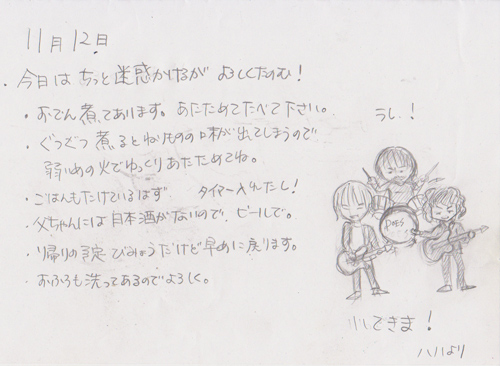 11月12日
・今日はちっと迷惑かけるが よろしくたのむ!
・おでん煮てあります。あたためてたべて下さい。
・ぐつぐつ煮るとねりものの味が出てしまうので
弱いめの火でゆっくりあたためてね。
・ごはんもたけているはず タイマー入れたし!
・父ちゃんには日本酒がないので、ビールで。
・帰りの予定 びみょうだけど早めに戻ります。
・おふろも洗ってあるのでよろしく。
うし!
いてきま!
ハハより